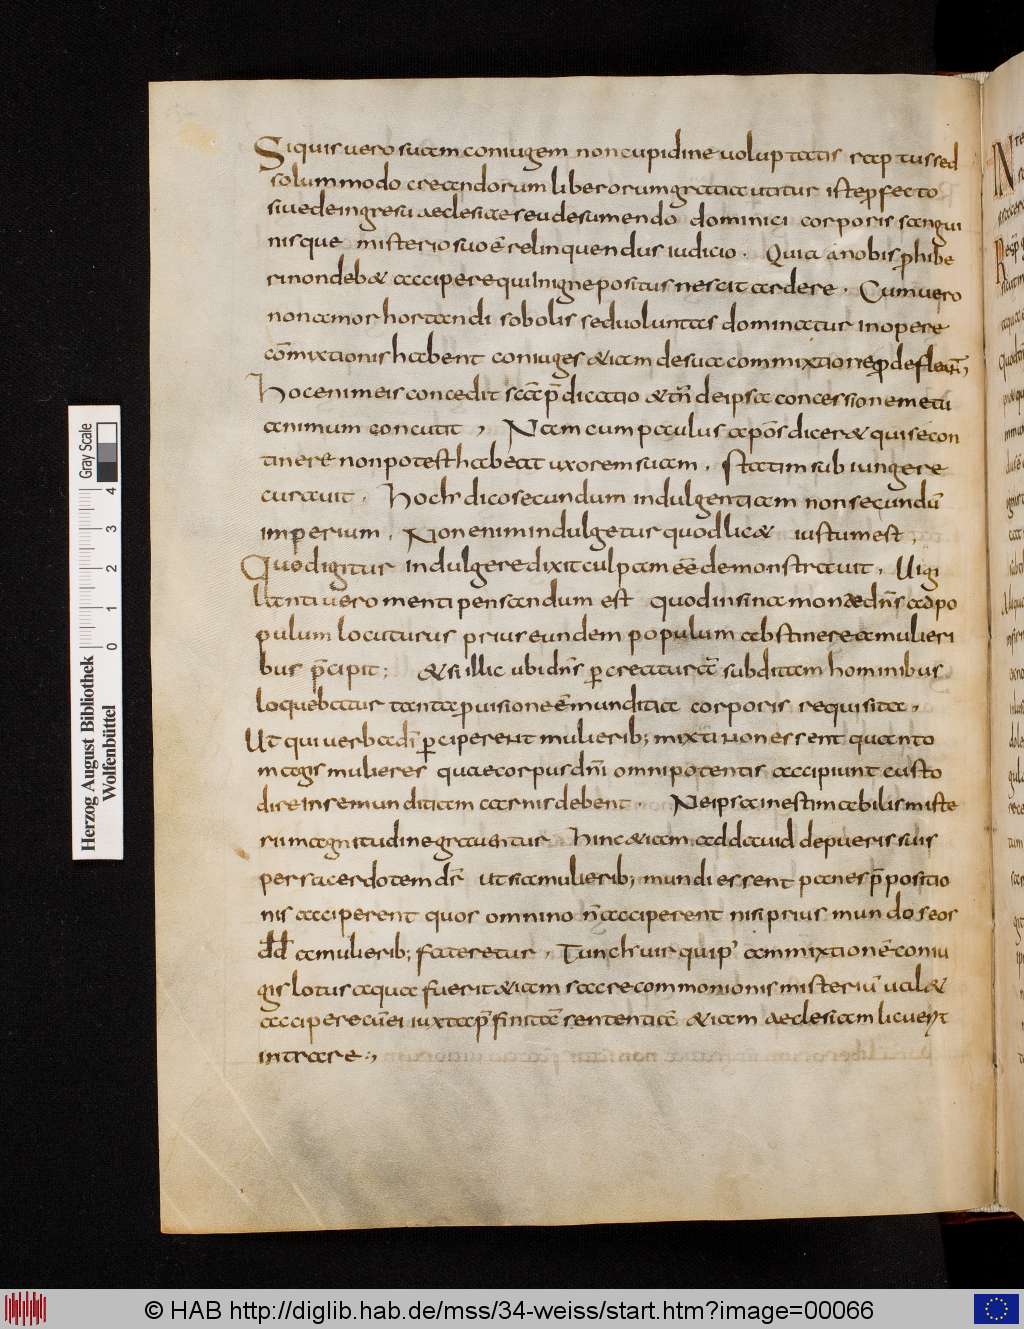 Siquis vero suam coniugem non cupidine voluptatis raptus sed
solummodo creandorum liberorum gratia utitur iste perfecto
sive de ingressu aeclesiae seu de sumendo dominici corporis sangui
nisque misterio suo ē relinquendus iudicio. Quia a nobis ꝓhibe
ri non deb& accipere qui in igne positus nescit ardere. Cum vero
non amor hortandi sobolis sed voluntas dominatur in opere
cōmixtionis habent coniuges &iam de sua commixtione
Hoc enim eis concedit sc̄a p̄dicatio &tn̄ de ipsa concessione metu
animum concutit, Nam cum paulus apōs dicer& qui se con
tinere non potest habeat uxorem suam. Statim subiungere
curavit. Hoc dico secundum indulgentiam non secundū
imperium. Non enim indulgetur quod lic& iustum est.
Quod igitur indulgere dixit culpam eēē demonstravit. Uigi
lanti vero menti pensandum est quod in sina monte dn̄s ad po
pulum locuturus prius eundem populum abstinere a mulieri
bus p̄cipit; &si illic ubi dn̄s per creaturā subditam hominibus
loquebatur tanta ꝓvisione ē munditia corporis requisita,
Ut qui verba dī perciperent mulierib; mixti non essent quanto
magis mulieres quae corpus dn̄i omnipotentis accipiunt custo
dire in se munditiam carnis debent. Ne ipsa inestimabilis miste
rii magnitudine graventur Hinc &iam ad david de pueris suis
per sacerdotem dr̄ ut si a mulierib; mundi essent panes p̄positio
nis acciperent quos omnino n̄ acciperent nisi prius mundos eos
dd a mulierib; fateretur. Tunc vir qui p' ammixtionē coniu
gis lotus aqua fuerit &iam sacre commonionis misteriū val&
accipere cū ei iuxta p̄finitā sententiā &iam aeclesiam licuerit
intrare.,
Herzog August Bibliothek
Wolfenbüttel
0 1 2 3 4
Gray Scale
© HAB http://diglib.hab.de/mss/34-weiss/start.htm?image=00066